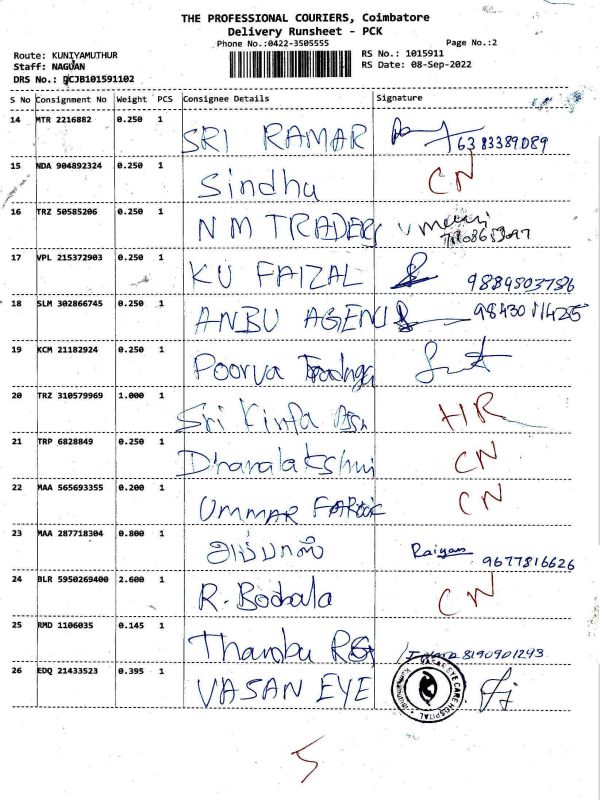 THE PROFESSIONAL COURIERS, Coimbatore
Delivery Runsheet - PCK
Phone No.:0422-3505555 Page No.:2
Route: KUNIYAMUTHUR RS No.: 1015911
Staff: NAGUAN RS Date: 08-Sep-2022
DRS No.: QCJB101591102
S No Consignment No Weight PCS Consignee Details Signature
14 MTR 2216882 0.250 1 SRI RAMAR 6383389089
15 NDA 904892324 0.250 1 Sindhu CN
16 TRZ 50585206 0.250 1 N M TRADERS
17 VPL 215372903 0.250 1 KU FAIZAL 9889503786
18 SLM 302866745 0.250 1 ANBU AGENI 9843011425
19 KCM 21182924 0.250 1 Poorva
20 TRZ 310579969 1.000 1 Sri HR
21 TRP 6828849 0.250 1 Dhanalakshmi CN
22 MAA 565693355 0.200 1 UMMAR FAROOK CN
23 MAA 287718304 0.800 1 அப்பாஸ் Raiyan 9677816626
24 BLR 5950269400 2.600 1 R. CN
25 RMD 1106035 0.145 1 8190901293
26 EDQ 21433523 0.395 1 VASAN EYE VASAN EYE CARE HOSPITAL
5